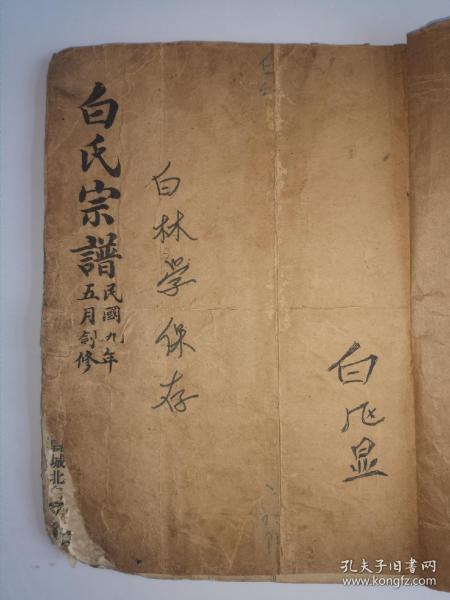 白氏宗譜
民國九年
五月創修
城北
白林学保存
白
显
孔夫子旧书网
www.kongfz.com